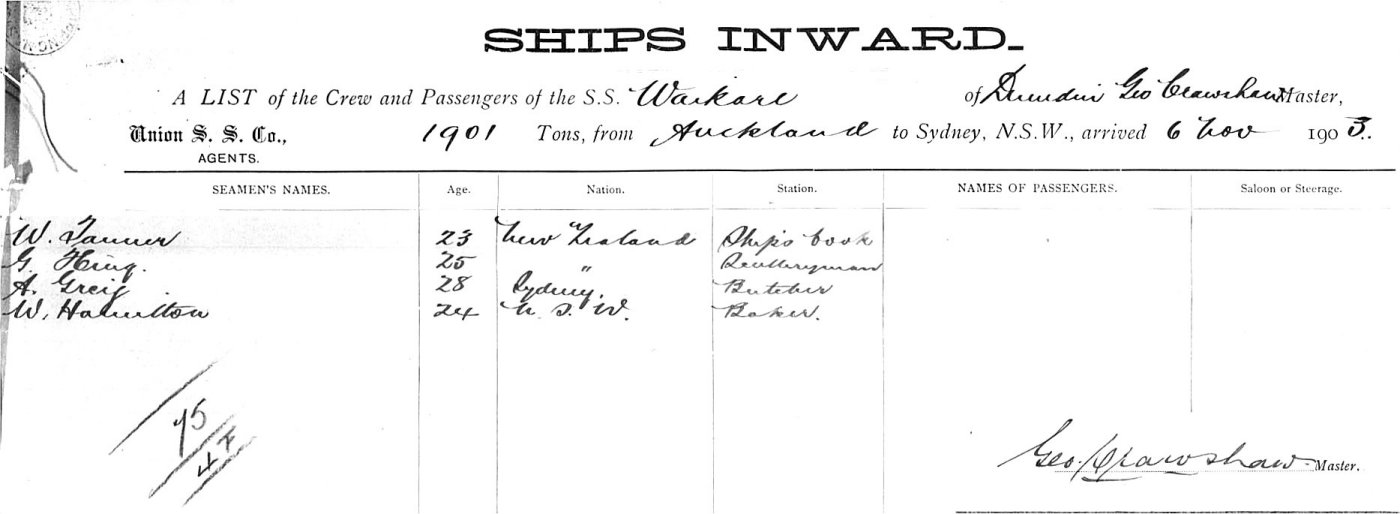 SHIPS INWARD.
A LIST of the Crew and Passengers of the S.S. Waikare of Dunedin Geo Crawshaw Master,
Union S. S. Co., AGENTS. 1901 Tons, from Auckland to Sydney, N.S.W., arrived 6 Nov 1903.
SEAMEN'S NAMES. Age. Nation. Station. NAMES OF PASSENGERS. Saloon or Steerage.
W. Tanner 23 New Zealand Ships Cook
G. 25 " Sculleryman
A. Greig 28 Sydney. Butcher
W. Hamilton 24 N. S. W. Baker.
75
47
Geo. Crawshaw Master.